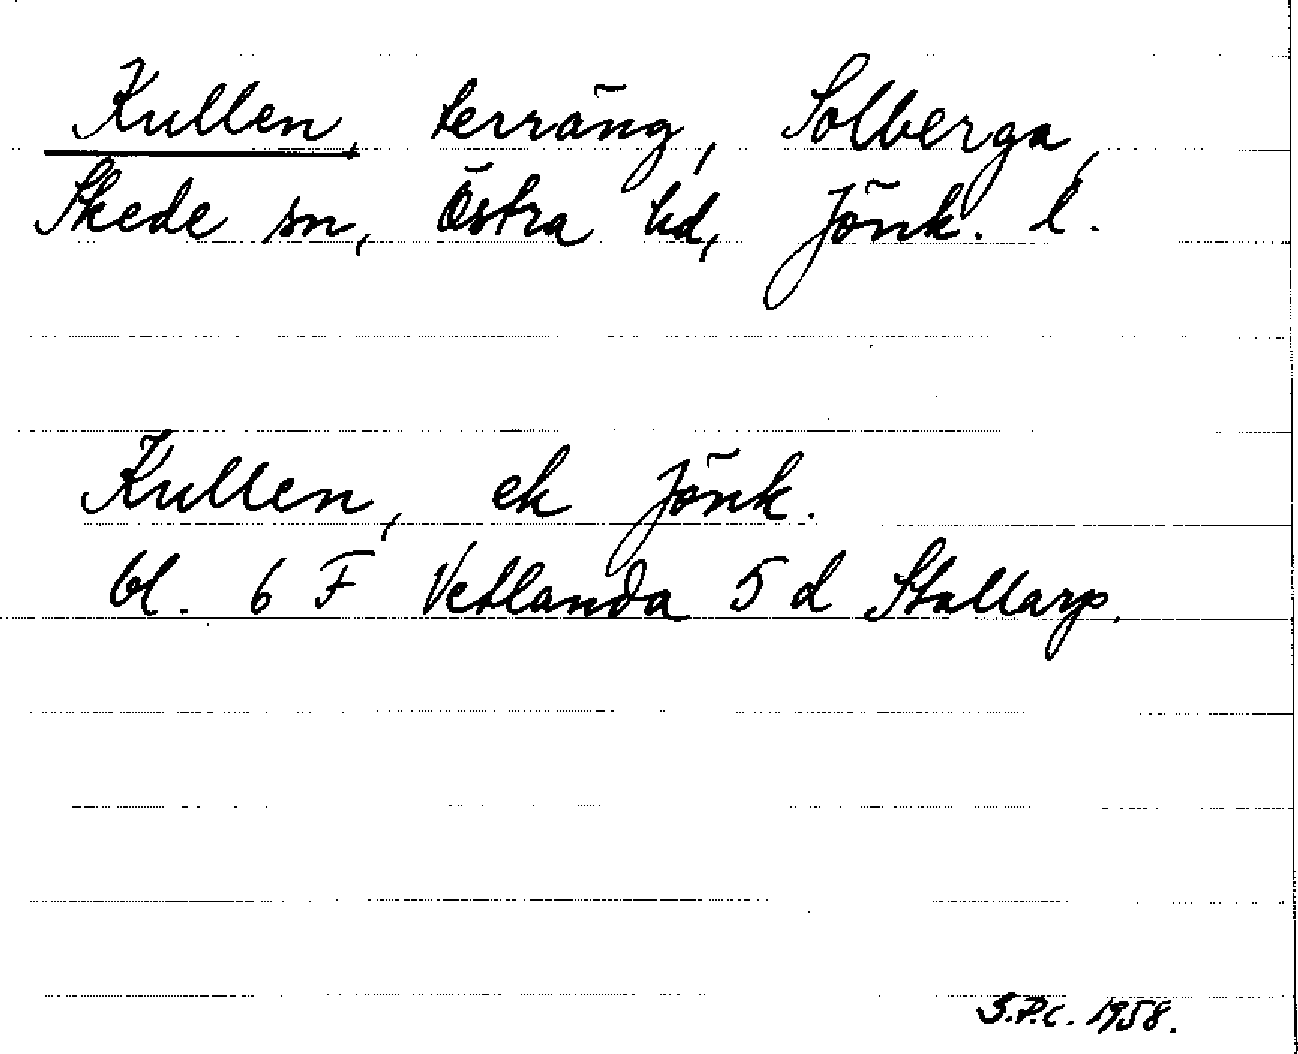 Kullen, terräng, Solberga,
Skede sn, Östra hd, Jönk. l.
Kullen, ek Jönk.
bl. 6 F Vetlanda 5 d Stallarp.
S.P.C. 1958.